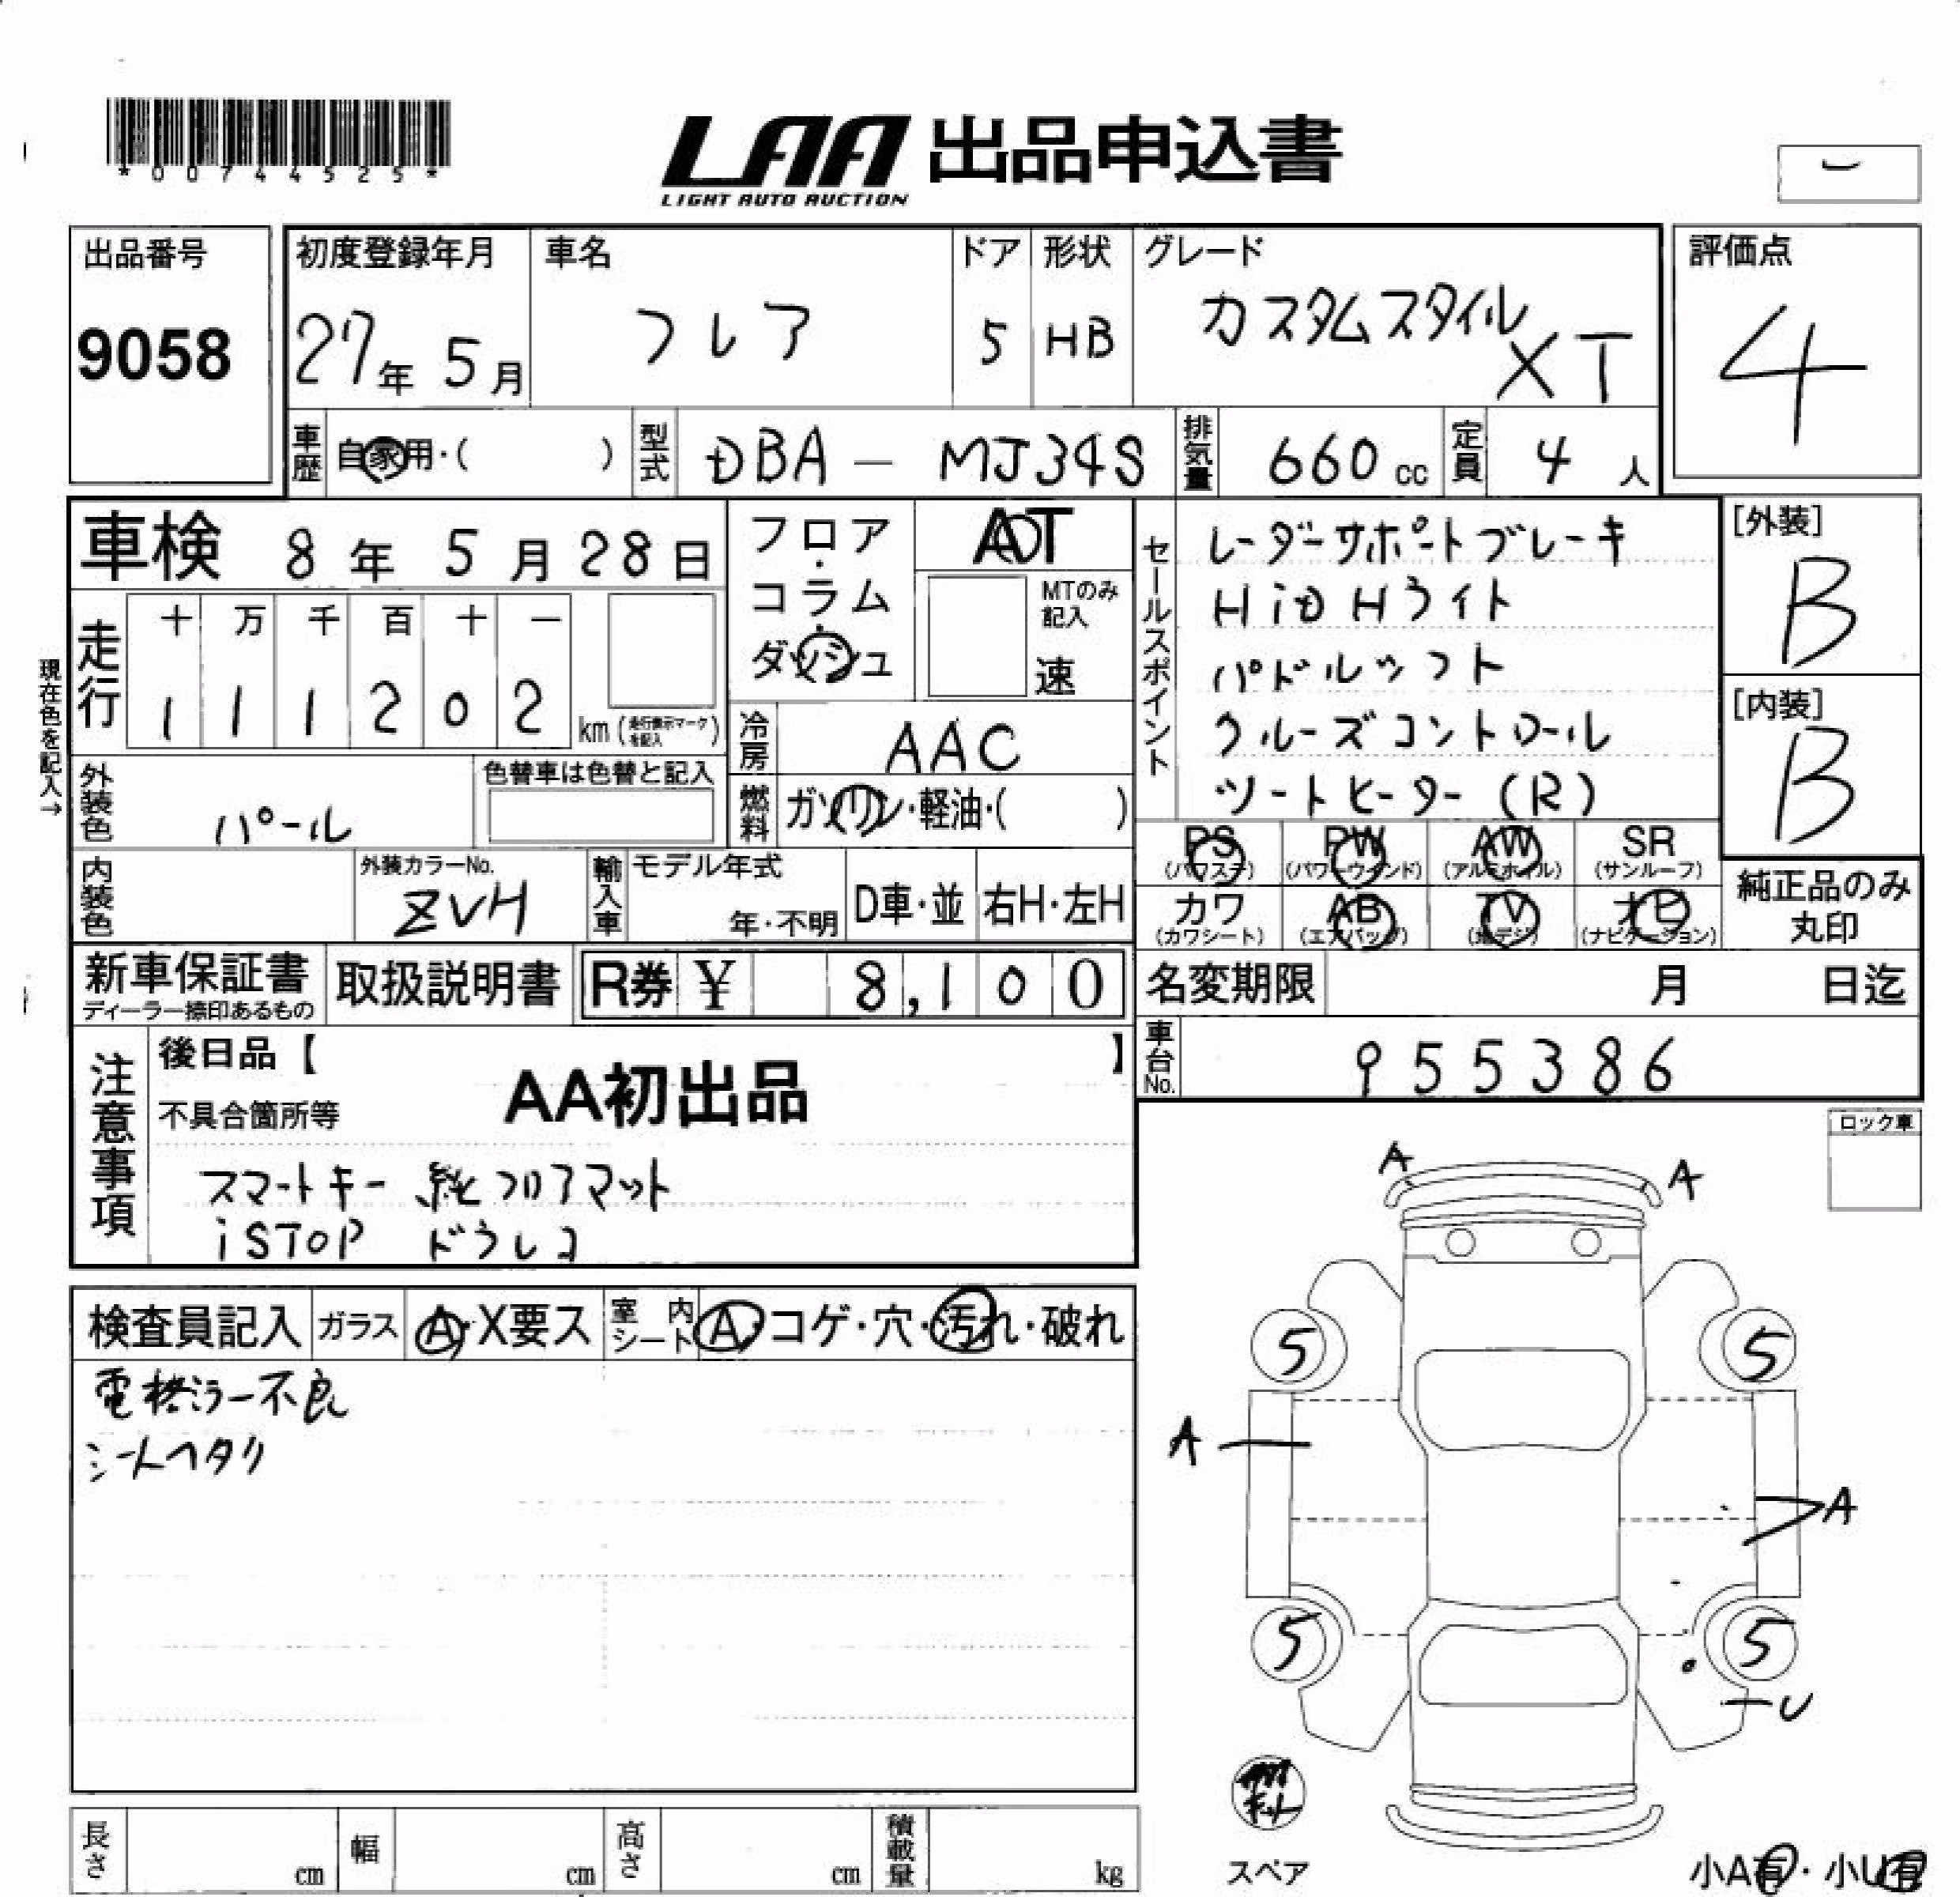 *00744525*
LAA 出品申込書
LIGHT AUTO AUCTION
出品番号
9058
初度登録年月
27年 5月
車名
フレア
ドア
5
形状
HB
グレード
カスタムスタイル
XT
評価点
4
車歴
自家用・( )
型式
DBA - MJ34S
排気量
660 cc
定員
4 人
車検 8年 5月 28日
フロア・コラム・ダッシュ
AT
MTのみ記入
速
現在色を記入→
走行
十 万 千 百 十 一
1 1 1 2 0 2
km (走行表示マークを記入)
冷房
AAC
燃料
ガソリン・軽油・( )
外装色
パール
色替車は色替と記入
内装色
外装カラーNo.
ZVH
輸入車
モデル年式
年・不明
D車・並
右H・左H
セールスポイント
レーダーサポートブレーキ
HiD Hライト
パドルシフト
クルーズコントロール
シートヒーター(R)
[外装]
B
[内装]
B
PS
(パワステ)
PW
(パワーウィンド)
AW
(アルミホイル)
SR
(サンルーフ)
カワ
(カワシート)
AB
(エアバッグ)
TV
(地デジ)
ナビ
(ナビゲーション)
純正品のみ
丸印
新車保証書
ディーラー捺印あるもの
取扱説明書
R券 ¥ 8,100
名変期限 月 日迄
車台No.
955386
注意事項
後日品【 】
不具合箇所等
AA初出品
スマートキー 純フロアマット
iSTOP ドラレコ
ロック車
検査員記入
ガラス
A・X要ス
室内シート
A・コゲ・穴・汚れ・破れ
電格ミラー不良
シートヘタリ
A
A
5
5
A
A
5
5
U
スペア
小A有・小U有
長さ cm
幅 cm
高さ cm
積載量 kg